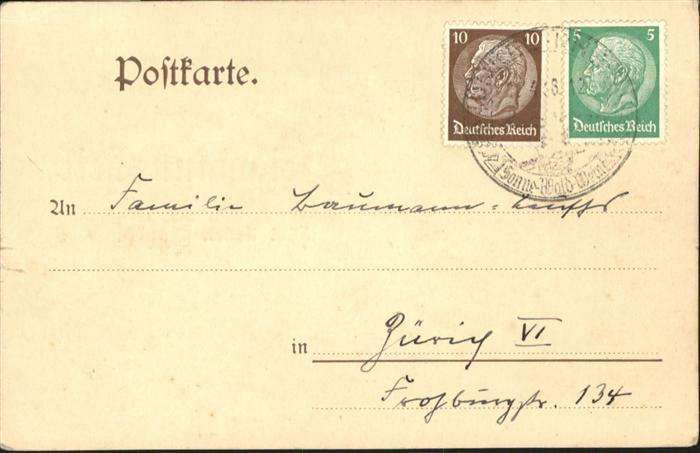 10 10 5 5
Deutsches Reich Deutsches Reich
Postkarte.
An Familie Baumann-
in Zürich VI
Frohburgstr. 134